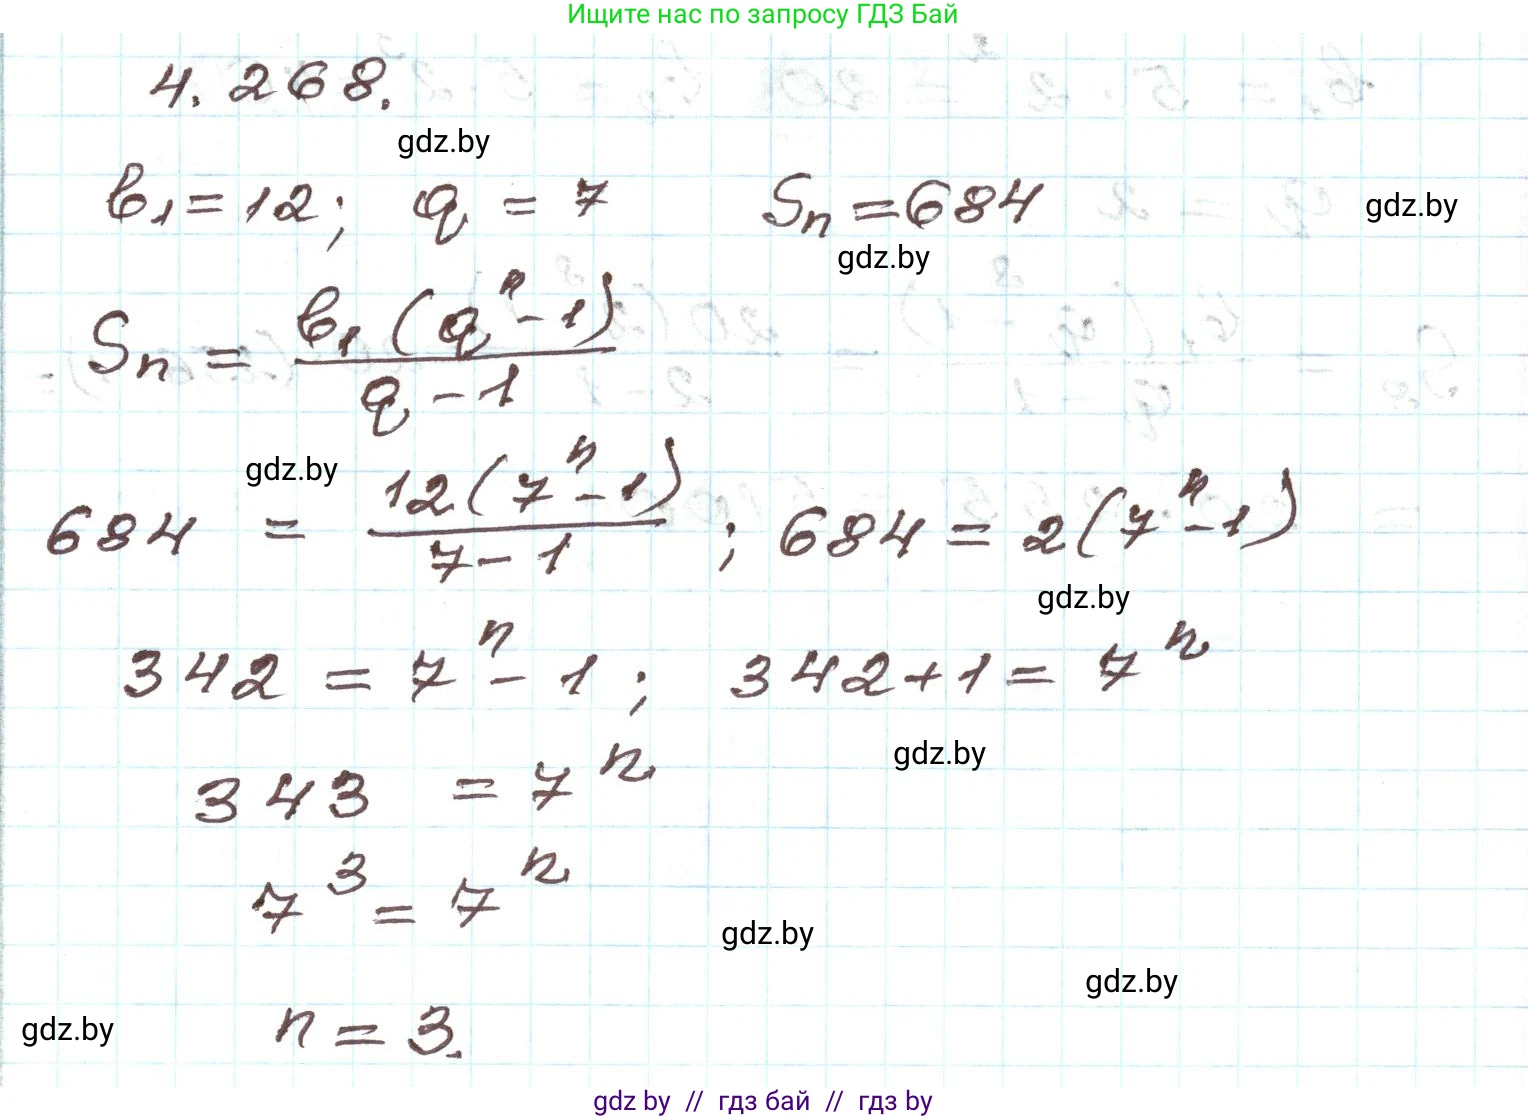 Ищите нас по запросу ГДЗ Бай
4.268.
gdz.by
b₁ = 12; q = 7 Sₙ = 684
gdz.by
gdz.by
Sₙ = b₁(qⁿ - 1) / q - 1
gdz.by
684 = 12(7ⁿ - 1) / 7 - 1 ; 684 = 2(7ⁿ - 1)
gdz.by
342 = 7ⁿ - 1 ; 342 + 1 = 7ⁿ
gdz.by
343 = 7ⁿ
7³ = 7ⁿ
gdz.by
gdz.by
gdz.by
n = 3.
gdz.by // гдз бай // гдз by